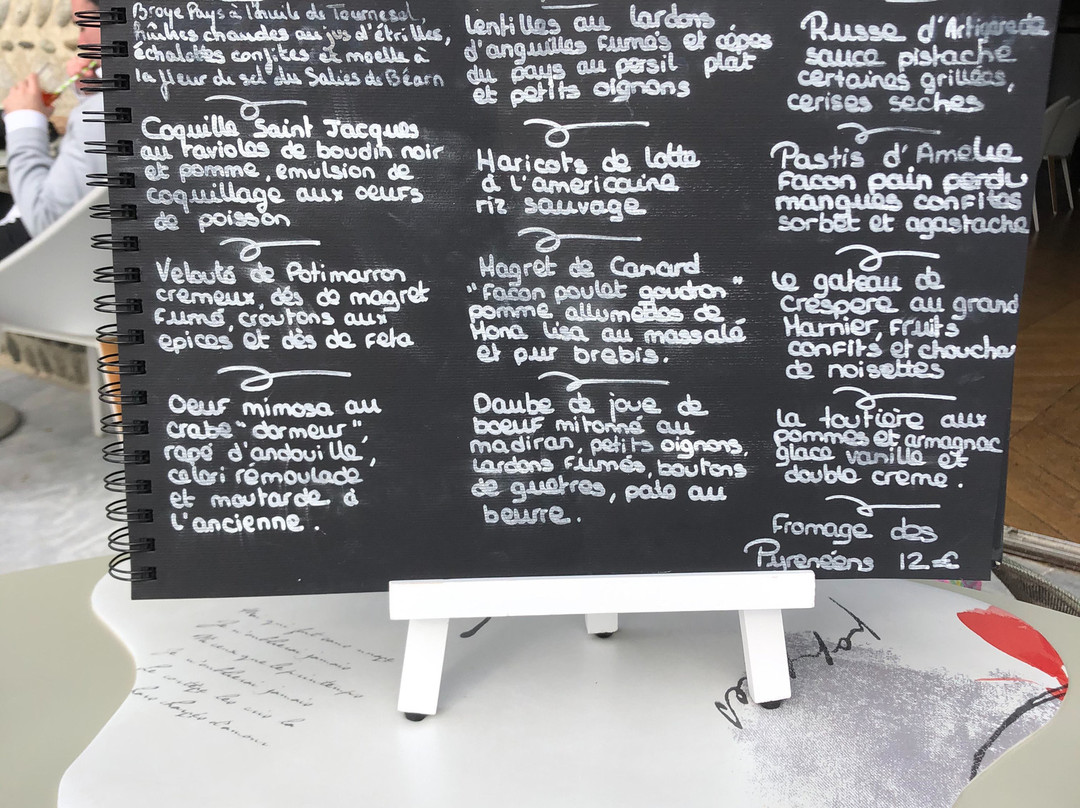 Broye Pays à l'huile de Tournesol,
huîtres chaudes au jus d'étrilles,
échalottes confites et moelle à
la fleur du sel du Salies de Béarn
Coquille Saint Jacques
au ravioles de boudin noir
et pomme, emulsion de
coquillage aux oeufs
de poisson
Velouté de Potimarron
cremeux, dés de magret
fumé, croutons aux
epices et dès de feta
Oeuf mimosa au
crabe "dormeur",
rapé d'andouille,
celeri rémoulade
et moutarde à
l'ancienne.
lentilles au lardons
d'anguilles fumés et cèpes
du pays au persil plat
et petits oignons
Haricots de lotte
à l'americaine
riz sauvage
Magret de Canard
"Facon poulet goudron"
pomme allumettes de
Mona lisa au massalé
et pur brebis.
Daube de joue de
boeuf mitonné au
madiran, petits oignons,
lardons fumés, boutons
de guetres, pato au
beurre.
Russe d'Artiguelade
sauce pistache
certaines grillées,
cerises seches
Pastis d'Amelie
Facon pain perdu
mangues confites
sorbet et agastache
le gateau de
crespere au grand
Marnier, fruits
confits et chouchou
de noisettes
la toutière aux
pommes et armagnac
glace vanille et
double creme.
Fromage des
Pyrenéens 12€